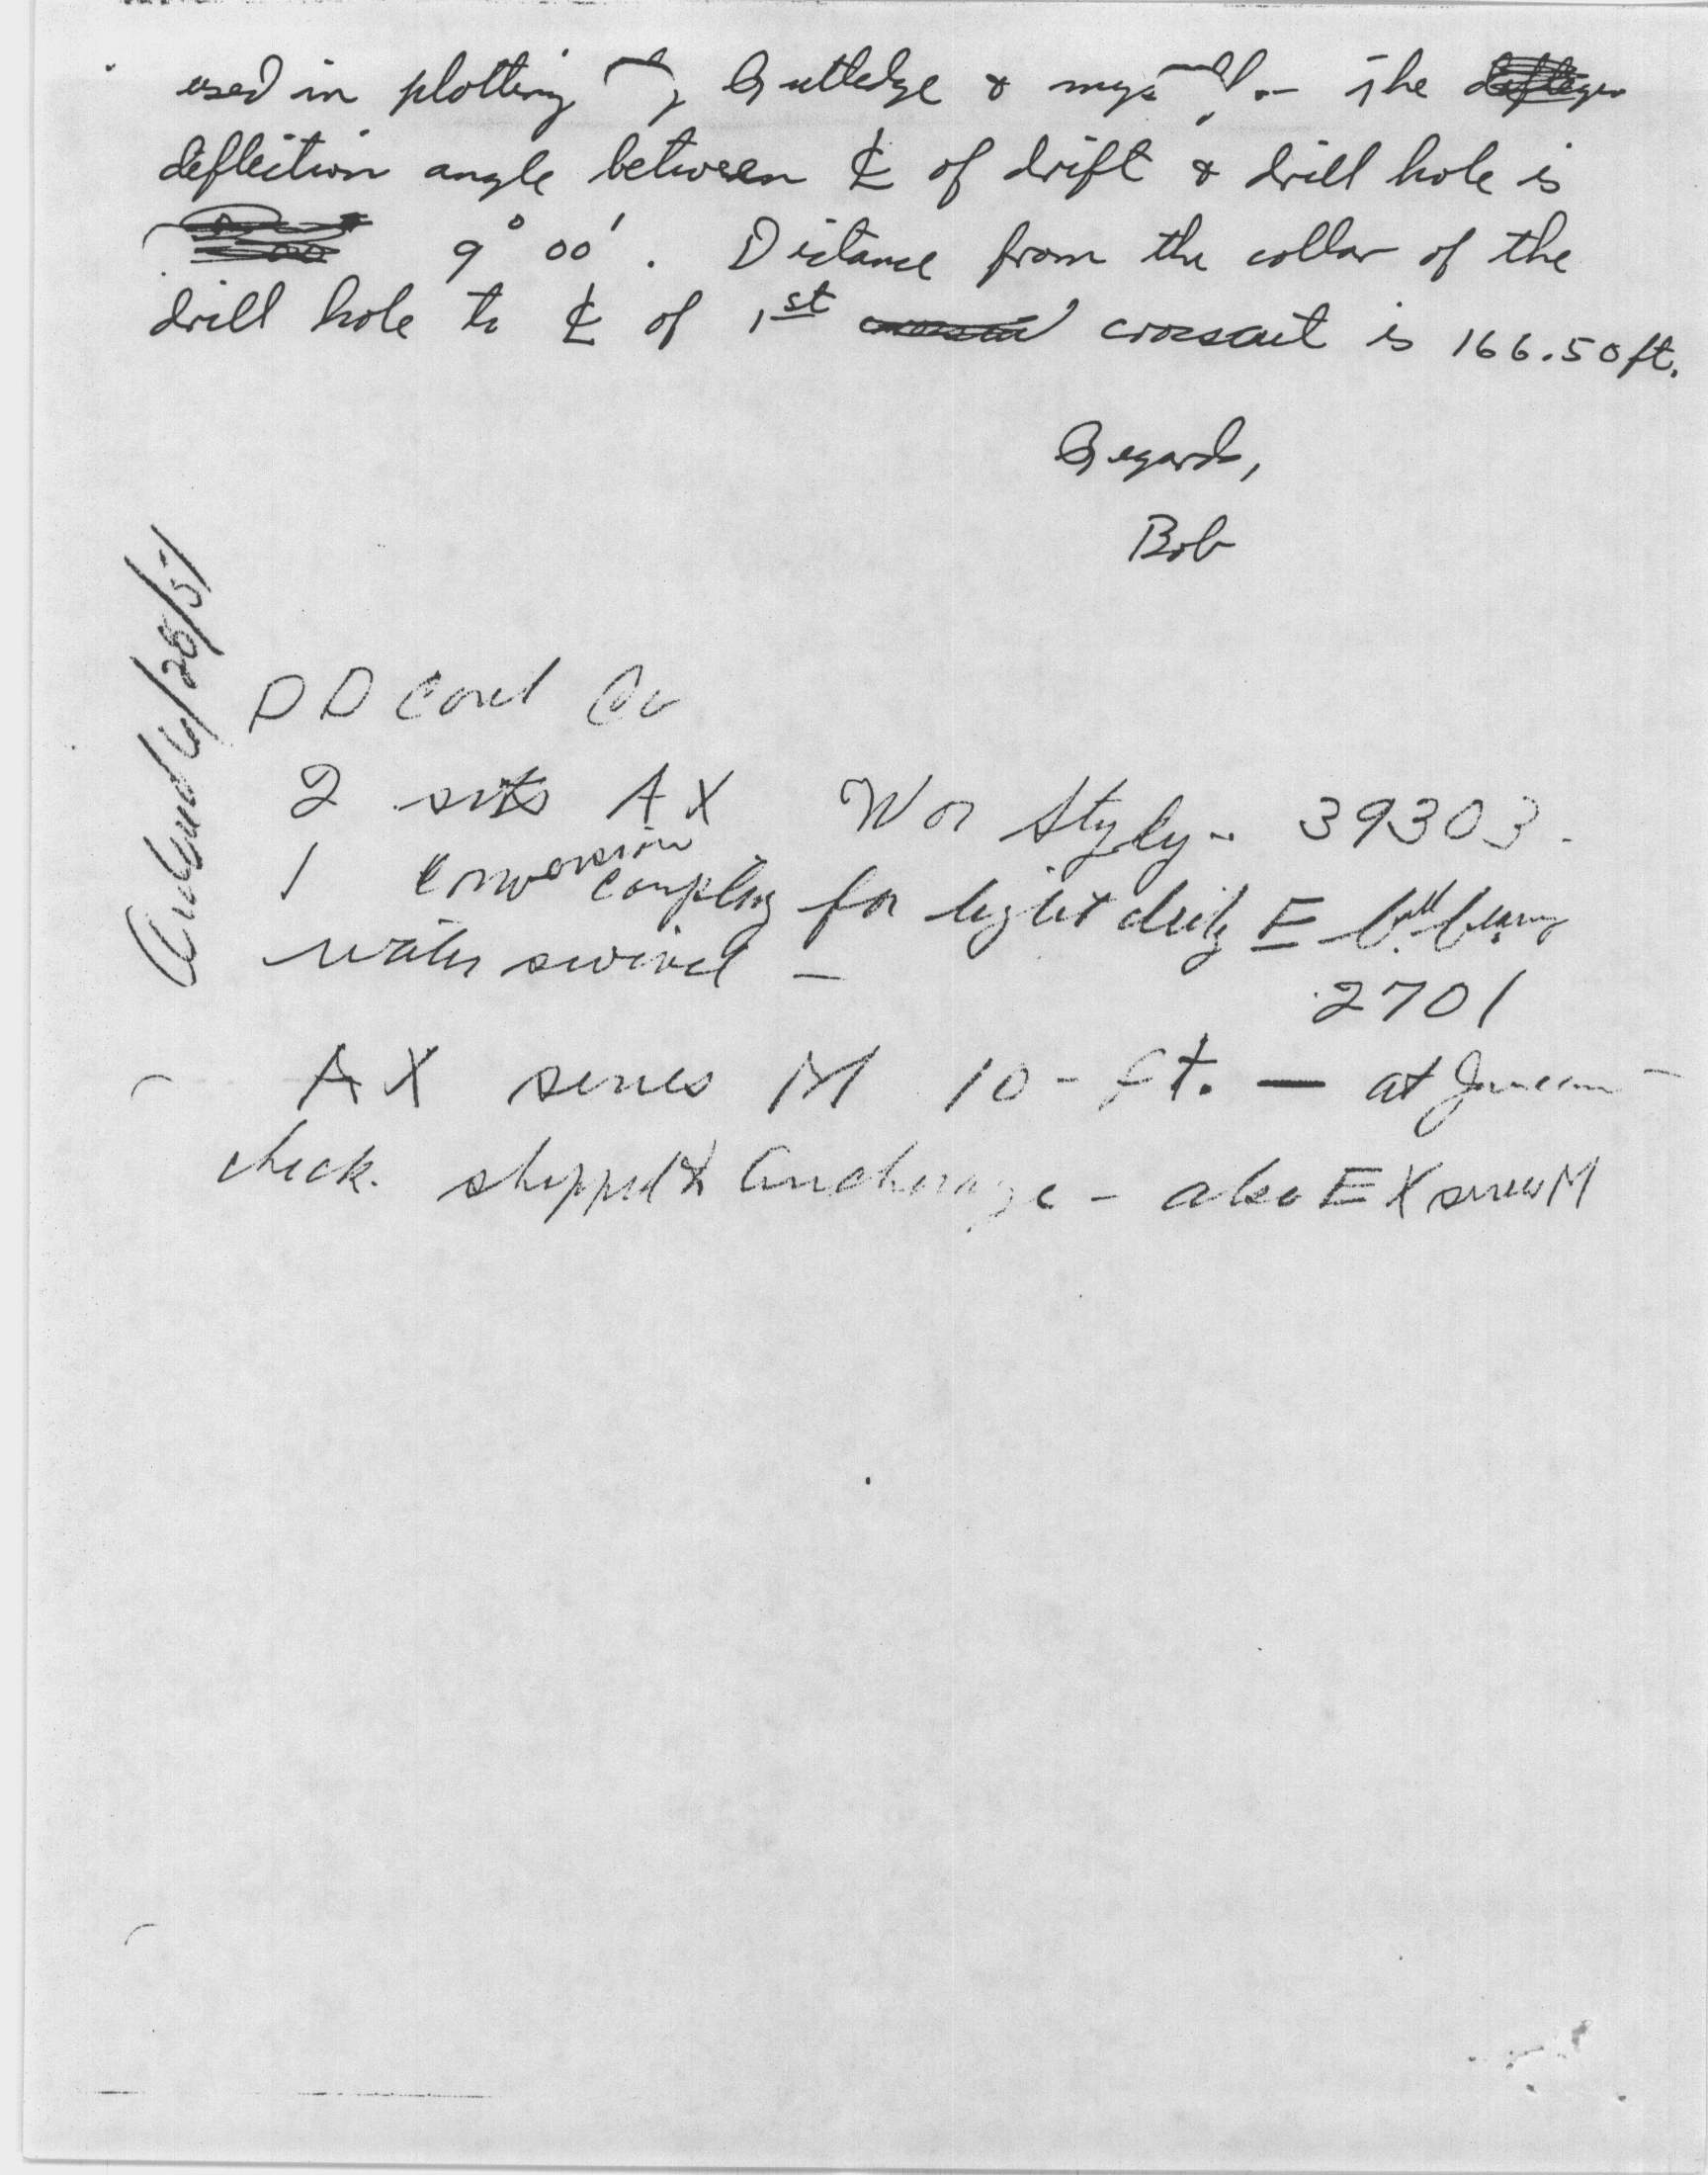 used in plotting by Rutledge & myself. – The
deflection angle between ℄ of drift & drill hole is
9° 00'. Distance from the collar of the
drill hole to ℄ of 1st crosscut is 166.50 ft.
Regards,
Bob
6/28/51
D D Co
2 sets AX 39303 –
1 conversion coupling for light duty E ball bearing
water swivel –
2701
AX series M 10-ft. — at Juneau –
check. shipped to Anchorage – also EX series M